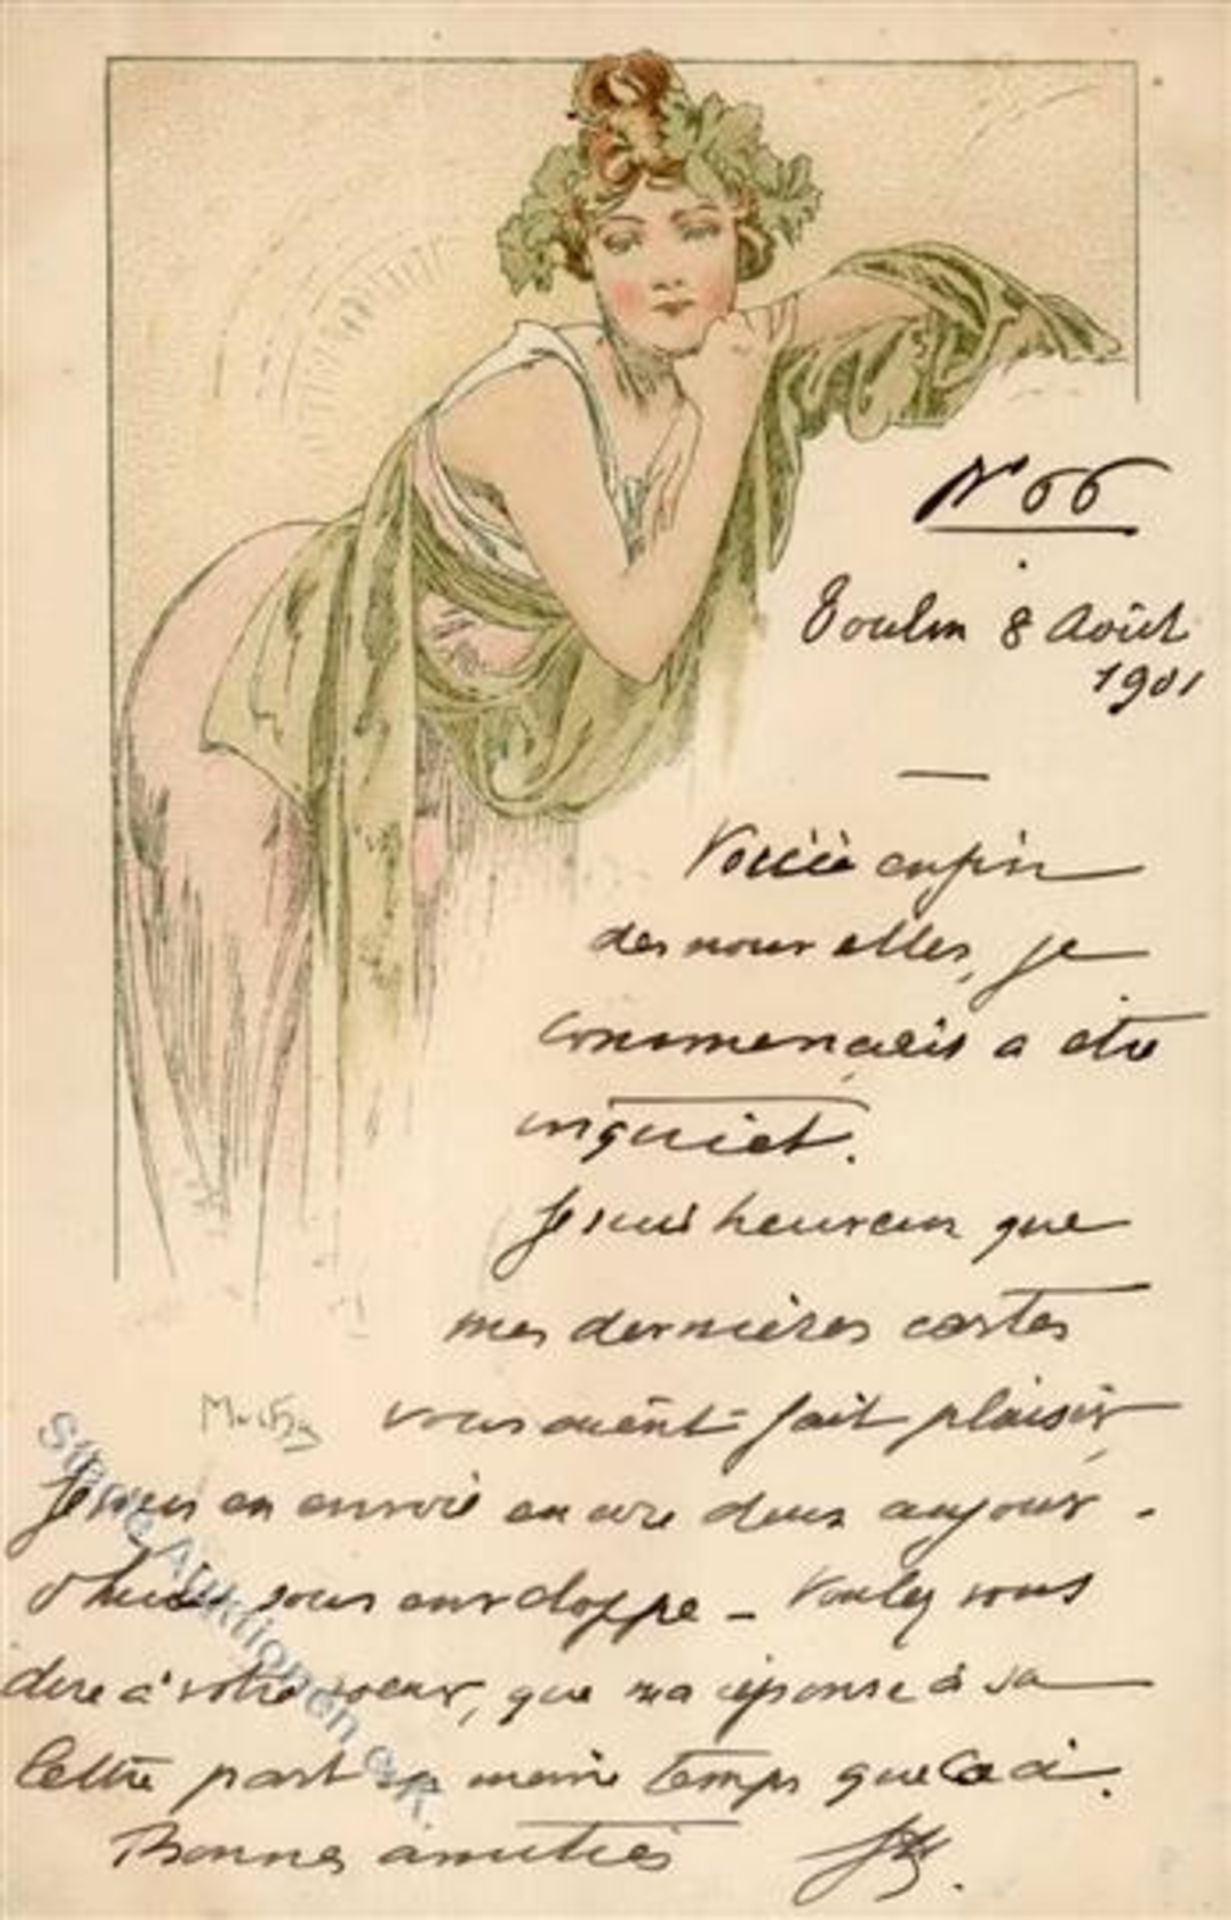 N° 66
Toulon 8 Août
1901
Voici enfin
des nouvelles, je
commençais a etre
inquiet.
Je suis heureux que
mes dernières cartes
Mucha
vous aient fait plaisir,
Je vous en envoie encore deux aujour-
d'hui sous enveloppe - Voulez vous
dire à votre soeur, que ma réponse à sa
lettre part en même temps que
Bonnes amitiés
Auktionen e.K.